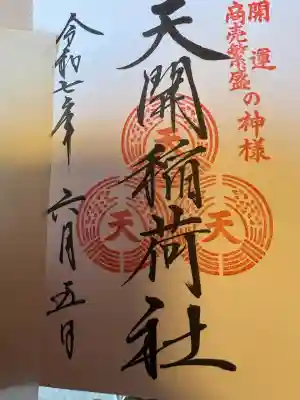 開運
商売繁盛の神様
天開稲荷社
天
天
天
令和七年 六月五日